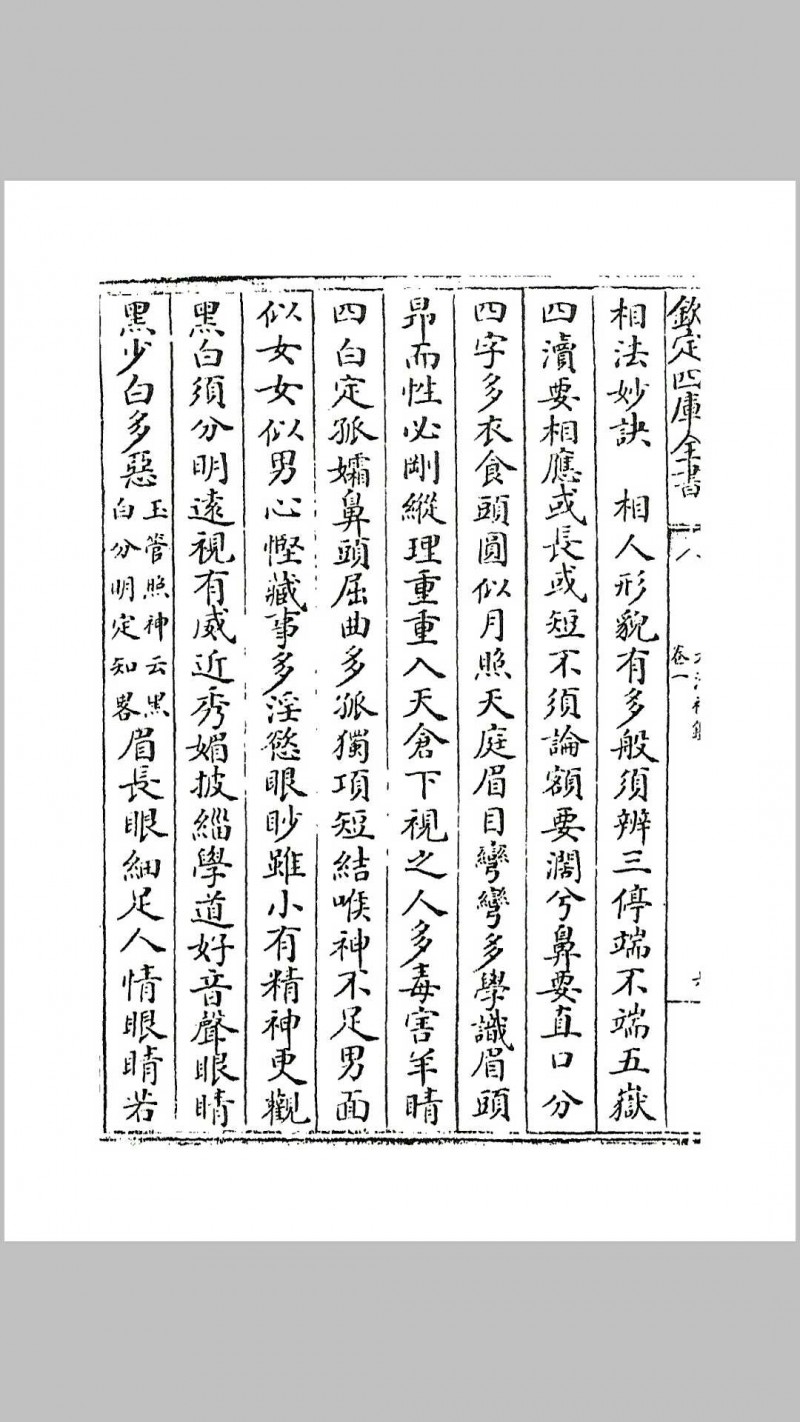 欽定四庫全書
卷一
相法妙訣 相人形貌有多般須辨三停端不端五嶽
四瀆要相應或長或短不須論額要濶兮鼻要直口分
四字多衣食頭圓似月照天庭眉目彎彎多學識眉頭
昻而性必剛縱理重重入天倉下視之人多毒害羊睛
四白定孤孀鼻頭屈曲多孤獨項短結喉神不足男面
似女女似男心慳藏事多淫慾眼眇雖小有精神更觀
黑白須分明遠視有威近秀媚披緇學道好音聲眼睛
黑少白多惡玉管照神云黑白分明定知畧眉長眼細足人情眼睛若